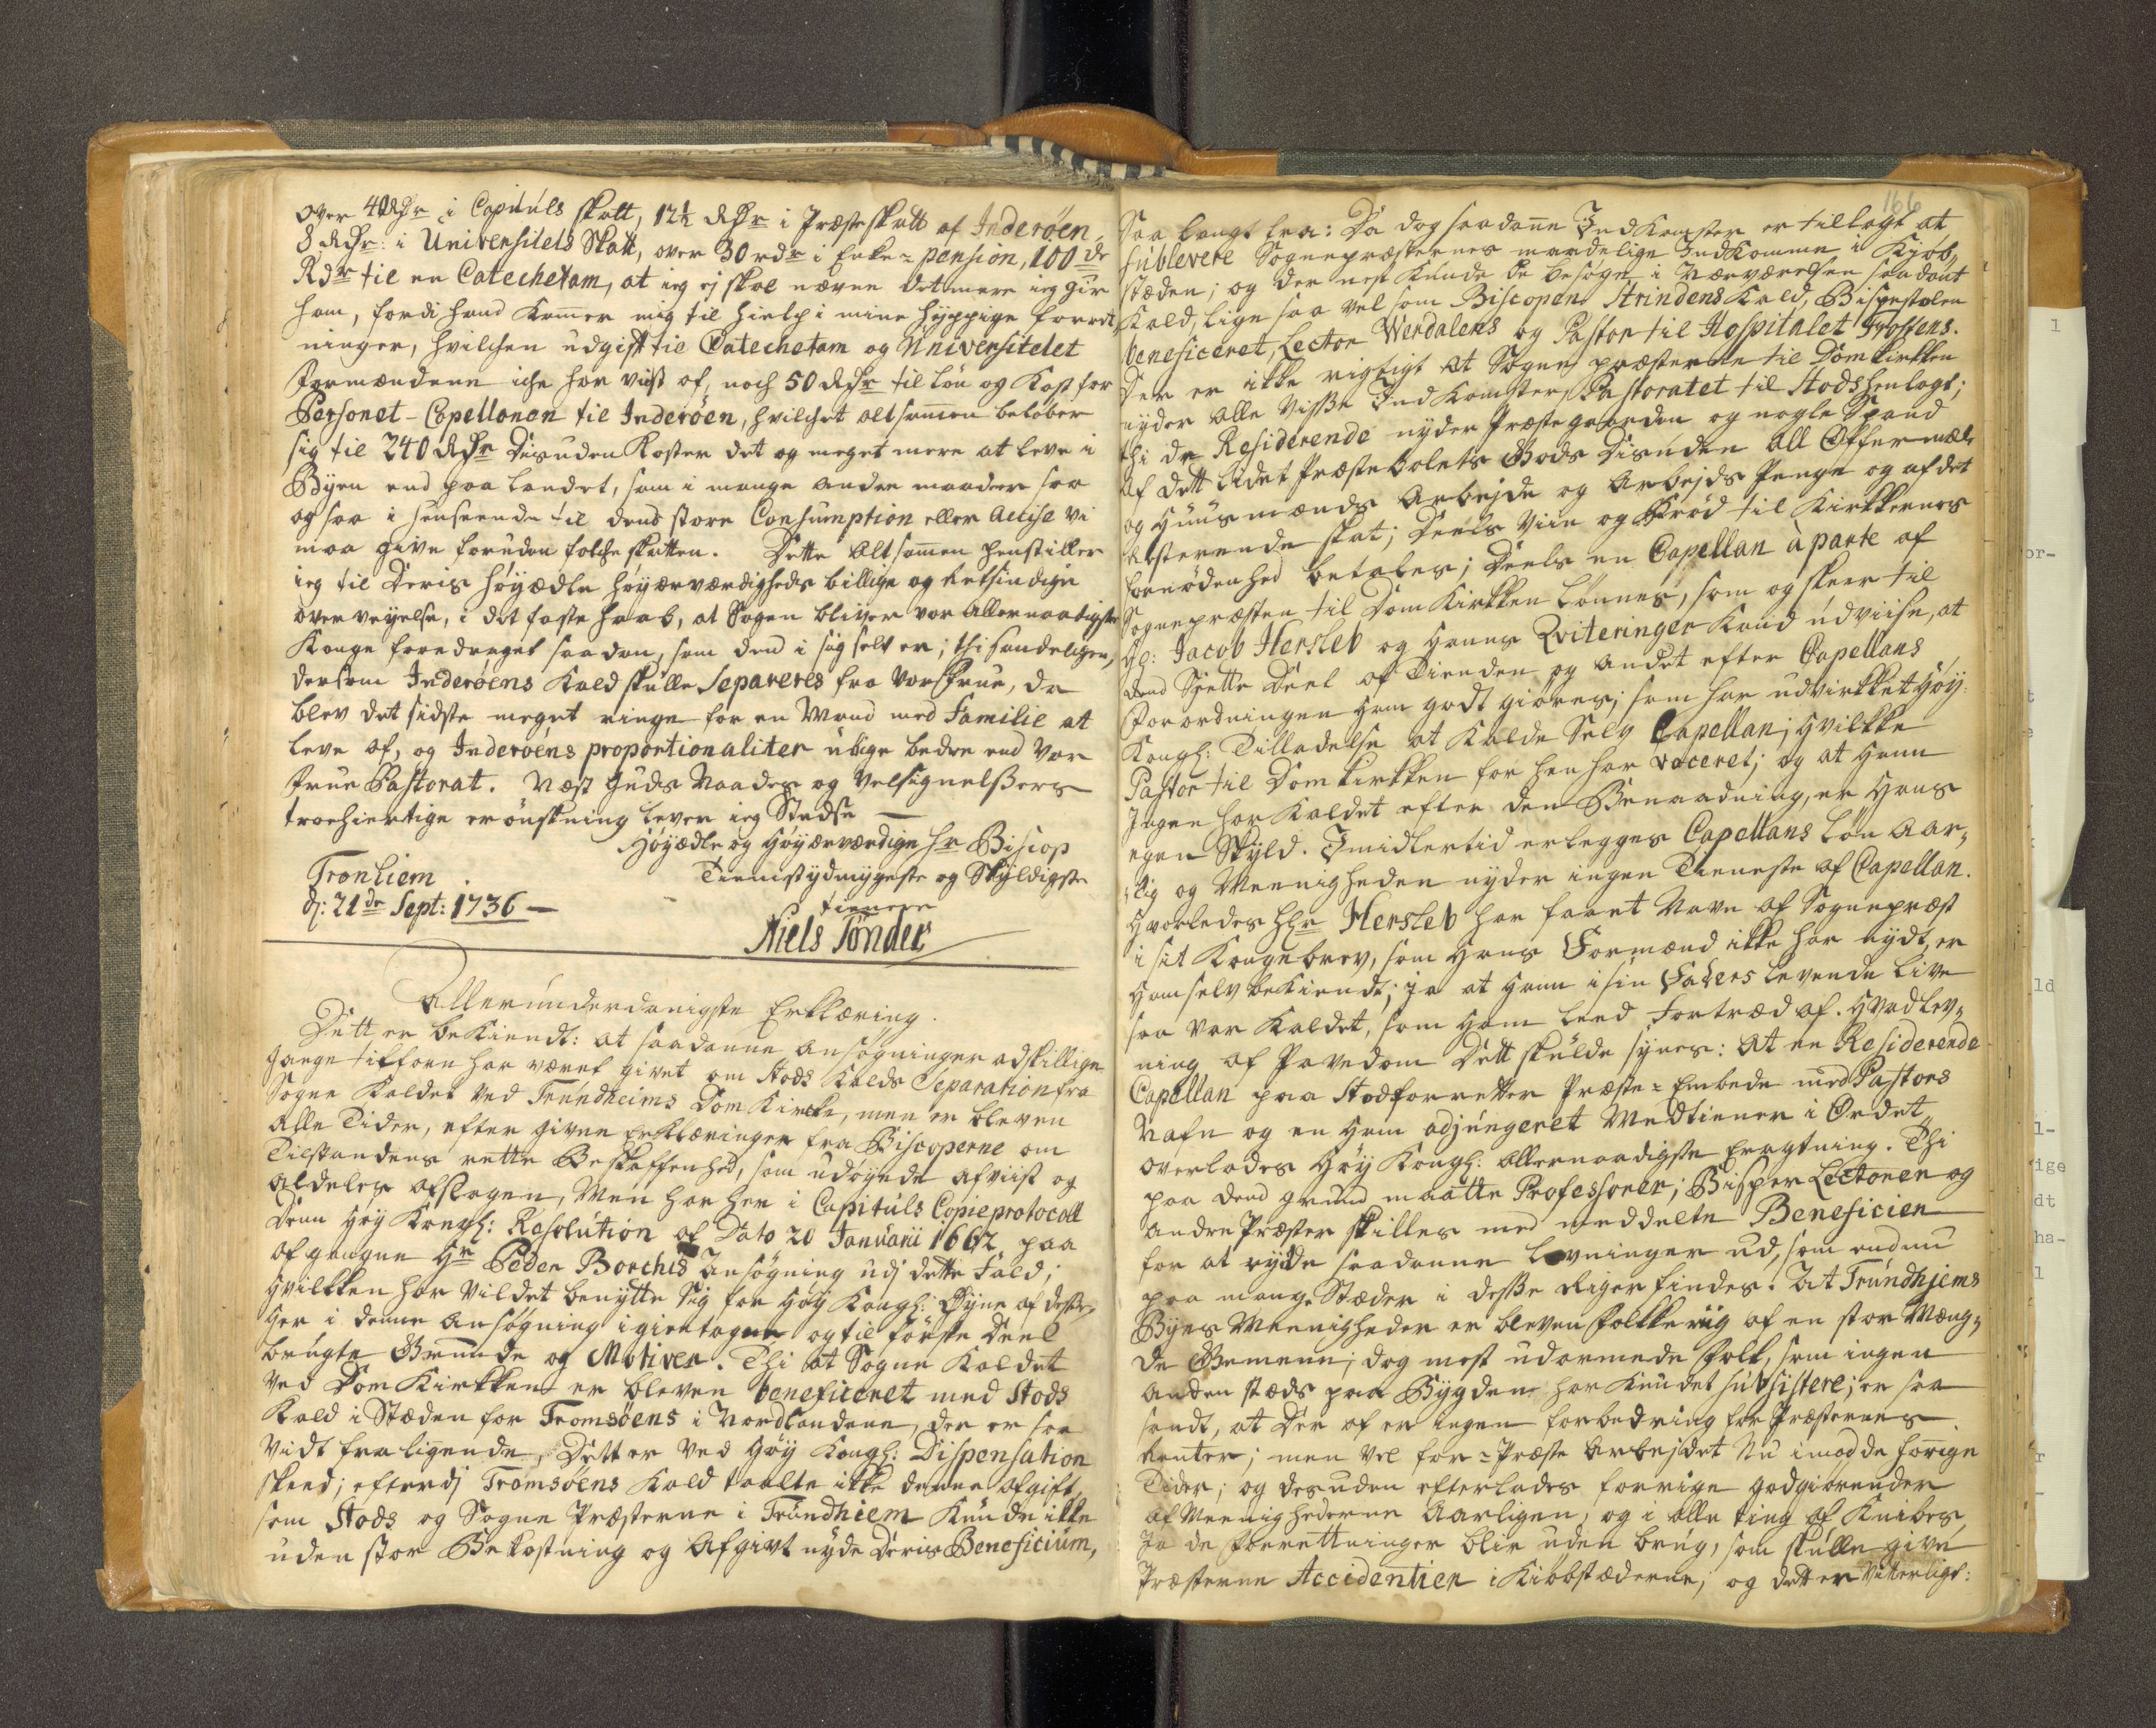 over 40 Rdr i Capituls skatt, 12½ Rdr i Præsteskatt af Inderöen,
8 Rdr: i Universitets Skatt, over 30 rdr i Enke-pension, 100de
Rdr til en Catechetam, at ieg ej skal nævne det mere ieg gir
ham, fordi hand kommer mig til hielp i mine hyppige forrett-
ninger, hvilchen udgift til Catechetam og Universitetet
Formændene iche har vist af, noch 50 Rdr til løn og Kost for
Personel-Capellanen til Inderöen, hvilchet altsammen beløber
sig til 240 Rdr Desuden Koster det og meget mere at leve i
Byen end paa Landet, som i mange andre maader saa
og saa i henseende til dend store Consumption eller Accise vi
maa give foruden folcheskatten. Dette altsammen henstiller
ieg til Deris Høyædle høyærværdigheds billige og Retsindige
overveyelse, i det faste haab, at Sagen bliver vor allernaadigste
Konge foredraget saadan, som dend i sig selv er; thi sandeligen,
dersom Inderöens Kald skulle Separeres fra Vor Frue, da
blev det sidste meget ringe for en Mand med Familie at
leve af, og Inderöens proportionaliter ulige bedre end Vor
Frue Pastorat. Næst Guds Naades og Velsignelssers
troehiertige erønskning lever ieg Stedse —
Høyædle og Høyærværdige Hr Biscop
Tronhiem Tienistydmygste og Skyldigste
d: 21de Sept: 1736 — tienere
Niels Tønder
Allerunderdanigste Erklæring.
Dett er bekiendt: at saadanne ansøgninger adskillige
gange tilforn har været givet om Stods Kalds Separation fra
Sogne Kaldet ved Trundheims Dom Kircke, men er bleven
alle Tider, efter givne Erklæringer fra Biscoperne om
Tilstandens rette Beskaffenhed, som udøgede afviist og
aldeles afslagen, Men har her i Capituls Copieprotocoll
Denn Høy Kongl: Resolution af Dato 20 Januarii 1662 paa
afgangne Hr Peder Borchs Ansøgning udj dette Fald;
Hvilkken har vildet benytte sig for Høy Kongl: Øyne af desse
Her i denne Ansøgning igientagne og til første Deel
brugte Grunde og Motiver. Thi at Sogne Kaldet
ved Dom Kirkken er bleven beneficeret med Stods
Kald i Stæden for Tromsöens i Nordlandene, der er saa
vidt fraliggende, Dett er ved Høy Kongl: Dispensation
skeed; efterdj Tromsöens Kald taalte ikke denne afgift,
som Stods og Sogne Præsterne i Trundhiem Kunde ikke
uden stor Bekostning og Afgivt nyde Deris Beneficium,
166
Saa langt fra: Da dog saadane IndKomster er tillagt at
sublevere Sognepræsternes maadelige IndKomme i Kjöb-
stæden; og der nest Kunde de besøge i Nærværelsen saadant
Kald, lige saa vel som Biscopen Strindens Kald, Bispestolen
beneficeret, Lector Werdalens og Pastor til Hospitalet Frostens.
Der er ikke rigtigt at Sogne præsterne til Domkirkken
nyder alle Visse IndKomster, Pastoratet til Stods henlagt;
thi de Residerende nyder Præstegaarden og nogle Spand
af dett lidet Præstebolets Gods Desuden all Offermæle
og Huusmænds Arbejde og Arbejds Penge og af det
resterende skat; Deels Viin og Brød til Kirkkernes
fornødenhed betales; Deels en Capellan à parte af
Sognepræsten til Dom Kirkken lønnes, som og skeer til
Hl: Jacob Hersleb og Hanns Qviteringer Kand udviise, at
dend Siette Deel af Tienden og andet efter Capellans
Forordningen Ham godt giøres; som har udvirkket Høy
Kongl: Tilladelse at Kalde Selv Capellan; Hvilkke
Pastor til Domkirkken for hen har voceret; og at Hann
Ingen har Kaldet efter den Benaadning, er Hans
egen Skyld. Imidlertid erlegges Capellans løn Aar-
lig og Meenigheden nyder ingen Tieneste af Capellan.
Hvorledes Hr Hersleb har faaet Navn af Sognepræst
i sit Kongebrev, som Hans Formænd ikke har nydt, er
Ham selv beKiendt; ja at Hann i sin Faders levende Live
saa var Kaldet, som Ham leed Fortræd af. Hvad Lev-
ning af Pavedom Dett skulde synes: at en Residerende
Capellan paa Stod forretter Præste-Embede med Pastors
Nafn og en Ham adjungeret Medtiener i Ordet,
overlades Høy Kongl: allernaadigste Eragtning. Thi
paa dend grund maatte Professorer; Bisper Lectorer og
andre Præster skilles med meddelte Beneficien
for at rydde saadanne Levninger ud, som endnu
paa mange Stæder i desse Riger findes. At Trundhjems
Byes Meenigheder er bleven folkkeriig af en stor Mæng-
de Gemene; dog mest udarmede Folk, som ingen
anden stæds paa Bygden har Kundet subsistere; er saa
sandt, at Der af er ingen forbedring for Præsternes
Renter; men vel for-Præste Arbejdet Nu imod de forrige
Tider; og desuden efterlades forrige godgiörender
af Meenighederne Aarligen, og i alle ting af Knibes,
Ja de forrettninger blir uden brug, som skulle give
Præsterne Accidentier i Kiöbstæderne, og dett er Vitterligt: